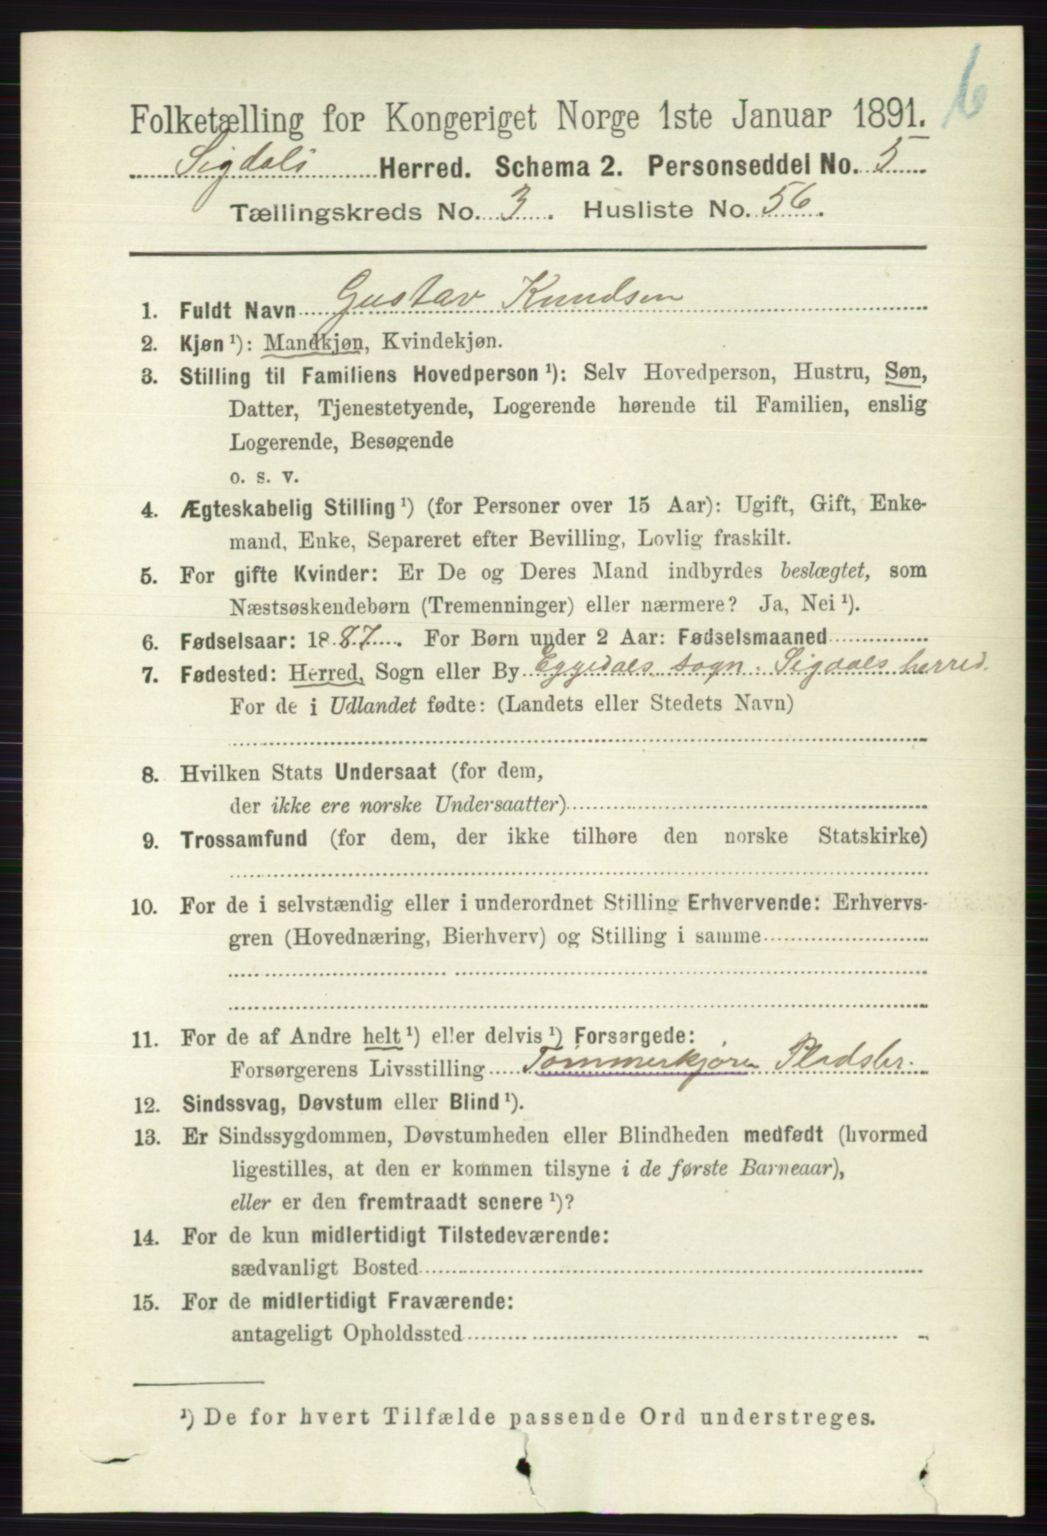 6
Folketælling for Kongeriget Norge 1ste Januar 1891.
Sigdals Herred. Schema 2. Personseddel No. 5
Tællingskreds No. 3. Husliste No. 56.
1. Fuldt Navn Gustav Knudsen
2. Kjøn ¹): Mandkjøn, Kvindekjøn.
3. Stilling til Familiens Hovedperson ¹): Selv Hovedperson, Hustru, Søn,
Datter, Tjenestetyende, Logerende hørende til Familien, enslig
Logerende, Besøgende
o. s. v.
4. Ægteskabelig Stilling ¹) (for Personer over 15 Aar): Ugift, Gift, Enke-
mand, Enke, Separeret efter Bevilling, Lovlig fraskilt.
5. For gifte Kvinder: Er De og Deres Mand indbyrdes beslægtet, som
Næstsøskendebørn (Tremenninger) eller nærmere? Ja, Nei ¹).
6. Fødselsaar: 1887. For Børn under 2 Aar: Fødselsmaaned
7. Fødested: Herred, Sogn eller By Eggedals sogn. Sigdals herred.
For de i Udlandet fødte: (Landets eller Stedets Navn)
8. Hvilken Stats Undersaat (for dem,
der ikke ere norske Undersaatter)
9. Trossamfund (for dem, der ikke tilhøre den norske Statskirke)
10. For de i selvstændig eller i underordnet Stilling Erhvervende: Erhvervs-
gren (Hovednæring, Bierhverv) og Stilling i samme
11. For de af Andre helt ¹) eller delvis ¹) Forsørgede:
Forsørgerens Livsstilling Tømmerkjører Pladsbr.
12. Sindssvag, Døvstum eller Blind ¹).
13. Er Sindssygdommen, Døvstumheden eller Blindheden medfødt (hvormed
ligestilles, at den er kommen tilsyne i de første Barneaar),
eller er den fremtraadt senere ¹)?
14. For de kun midlertidigt Tilstedeværende:
sædvanligt Bosted
15. For de midlertidigt Fraværende:
antageligt Opholdssted
¹) De for hvert Tilfælde passende Ord understreges.